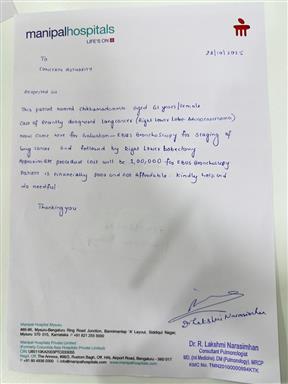 manipalhospitals
LIFE'S ON
28/10/2025
To
Concern Authority
Respected Sir
This patient named Chikkamadamma aged 61 years/female
Case of Recently diagnosed lung cancer (Right Lower Lobe - Adenocarcinoma)
Now came here for Evaluation - EBUS Bronchoscopy for staging of
lung cancer and followed by Right Lower Lobectomy
Approximate procedural cost will be 1,00,000 for EBUS Bronchoscopy
Patient is financially poor and not affordable. Kindly help and
do needful
Thanking you
Dr Lakshmi Narasimhan
Dr. R. Lakshmi Narasimhan
Consultant Pulmonologist
MD, (Int Medicine), DM (Pulmonology), MRCP
KMC No. TMN20100000994KTK
Manipal Hospital Mysuru
Mysuru-Bengaluru Ring Road Junction, Bannimantap 'A' Layout, Siddiqui Nagar,
Mysuru 570 015, Karnataka
Manipal Hospitals Private Limited
(Formerly Columbia Asia Hospitals Private Limited)
Regd. Off: The Annexe, #98/2, Rustom Bagh, Off. HAL Airport Road, Bengaluru - 560 017